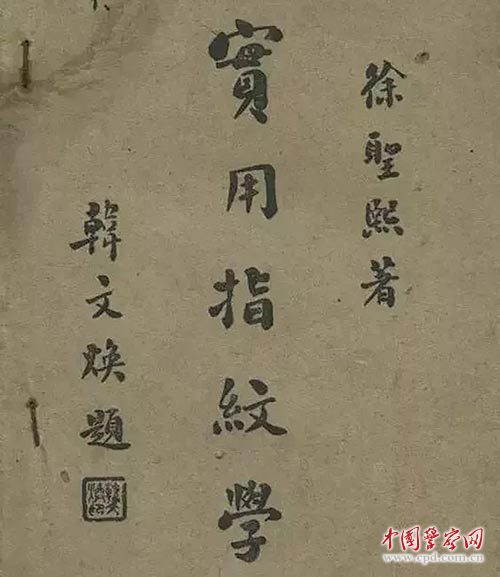 徐聖熙著
實用指紋學
韓文煥題
中国警察网
www.cpd.com.cn